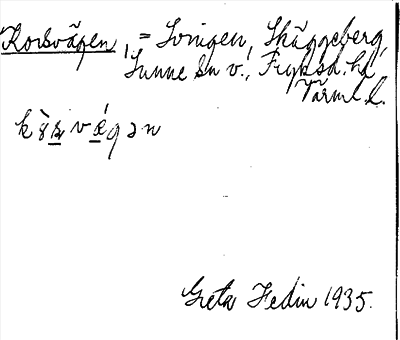 Korsvägen, = Svingen, Skäggeberg,
Sunne sn v., Fryksd. hd
Värml. l.
kὸ̣ʂvǽgən
Greta Hedin 1935.